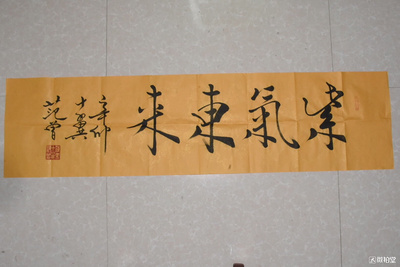 紫氣東来
辛卯
十翼
范曾
微拍堂